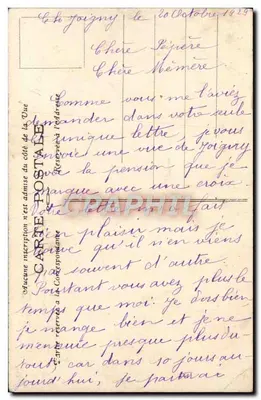 Ch Joigny le 20 Octobre 1925
Chère Pépère
Chère Mémère
Comme vous me l'aviez
demander dans votre seule
et unique lettre, je vous
envoie une vue de Joigny
avec la pension que je
marque avec une croix.
Votre lettre m'a fait
bien plaisir mais je
vous qu'il n'en viens
pas souvent d'autre.
Pourtant vous avez plus le
temps que moi. Je dors bien
je mange bien et je ne
m'ennuie presque plus du
tout, car dans 10 jours au
jourd'hui, je partirai
CARTE POSTALE
Aucune inscription n'est admise du côté de la Vue
Carte réservée à la Correspondance
Réservée à l'adresse
CPARAMA